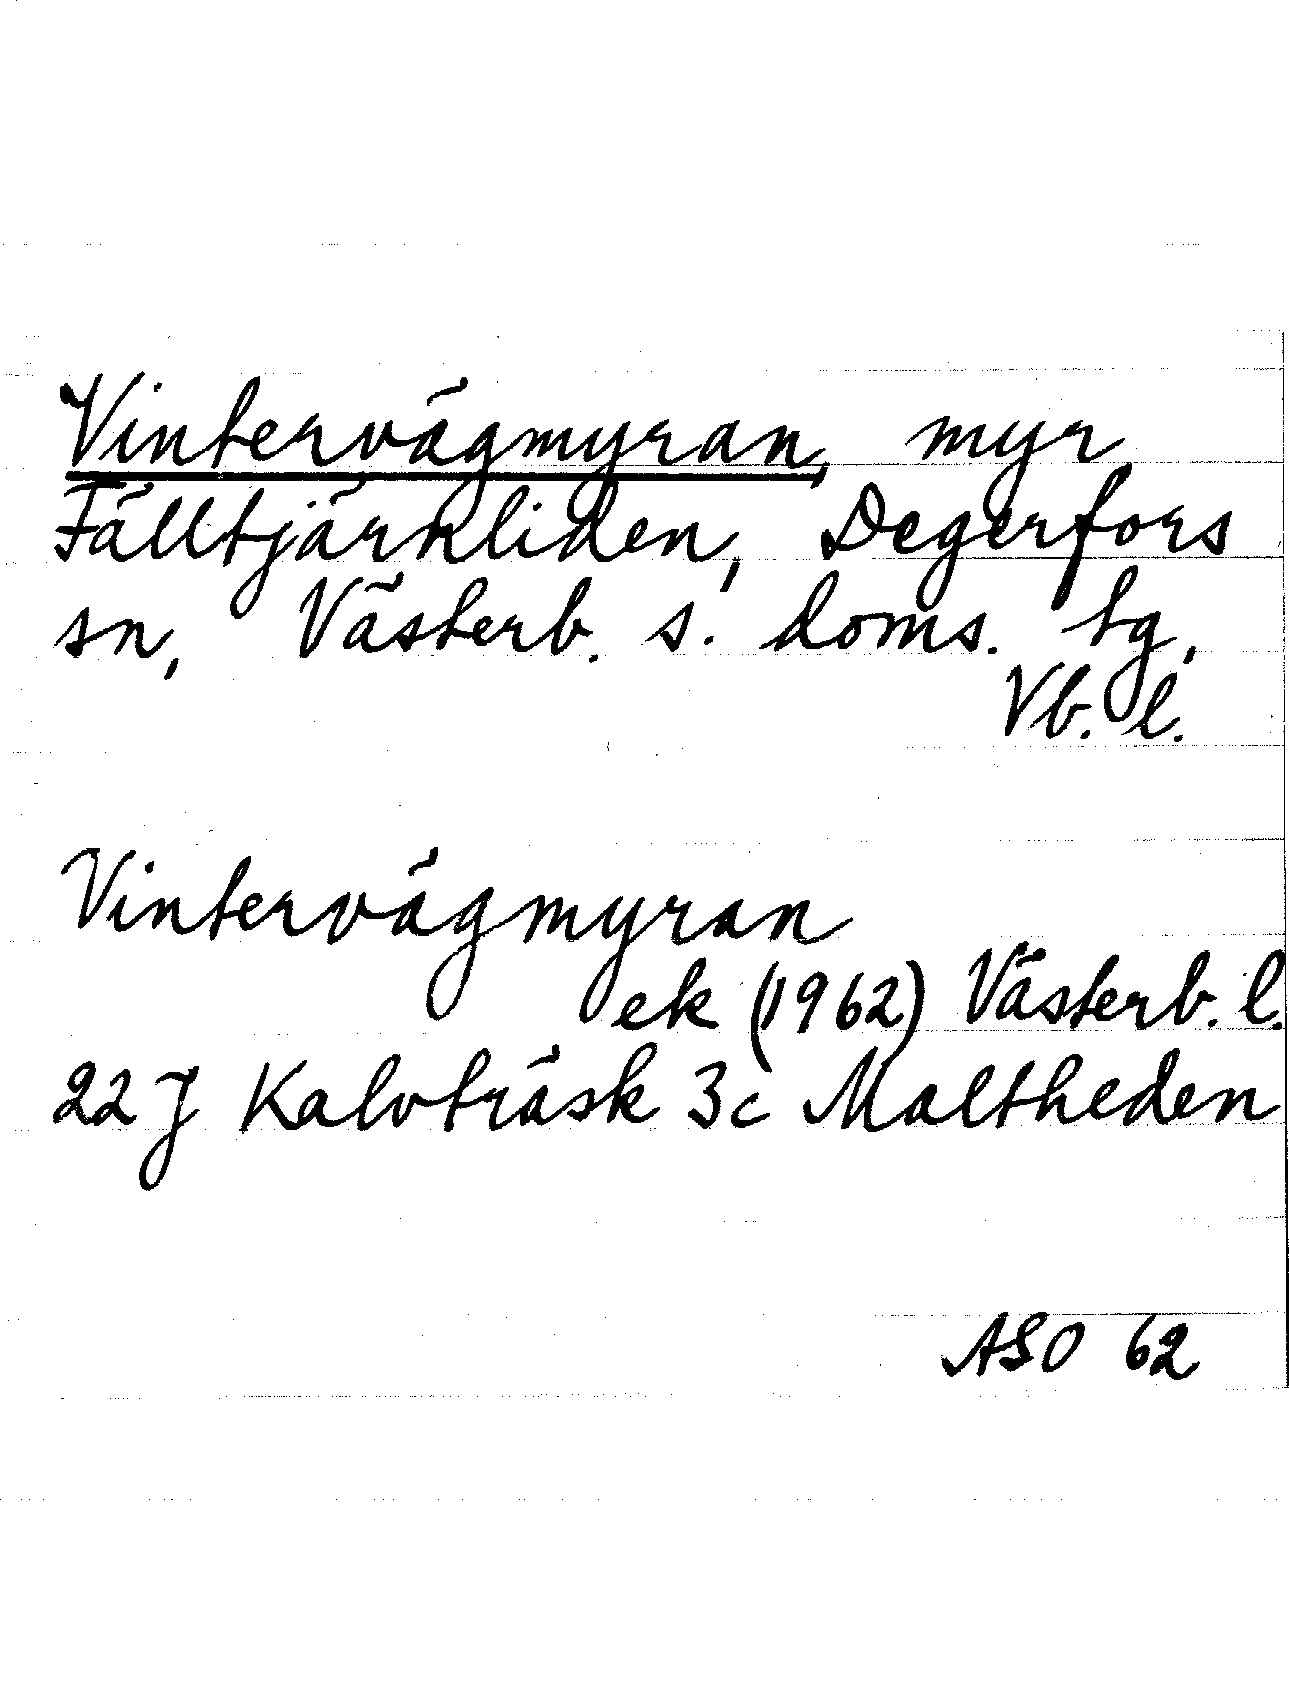 Vintervägmyran, myr
Fälltjärkliden, Degerfors
sn, Västerb. s. doms. tg,
Vb. l.
Vintervägmyran
ek (1962) Västerb. l.
22 J Kalvträsk 3c Maltheden
ASO 62